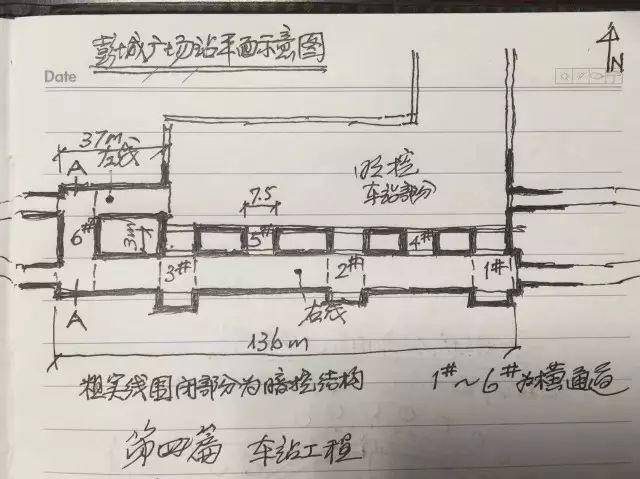 彭城广场站平面示意图
Date
N
37m
左线
A
明挖
车站部分
7.5
6#
3m
5#
4#
3#
2#
1#
A
右线
136m
粗实线围闭部分为暗挖结构
1#~6#为横通道
第四篇 车站工程